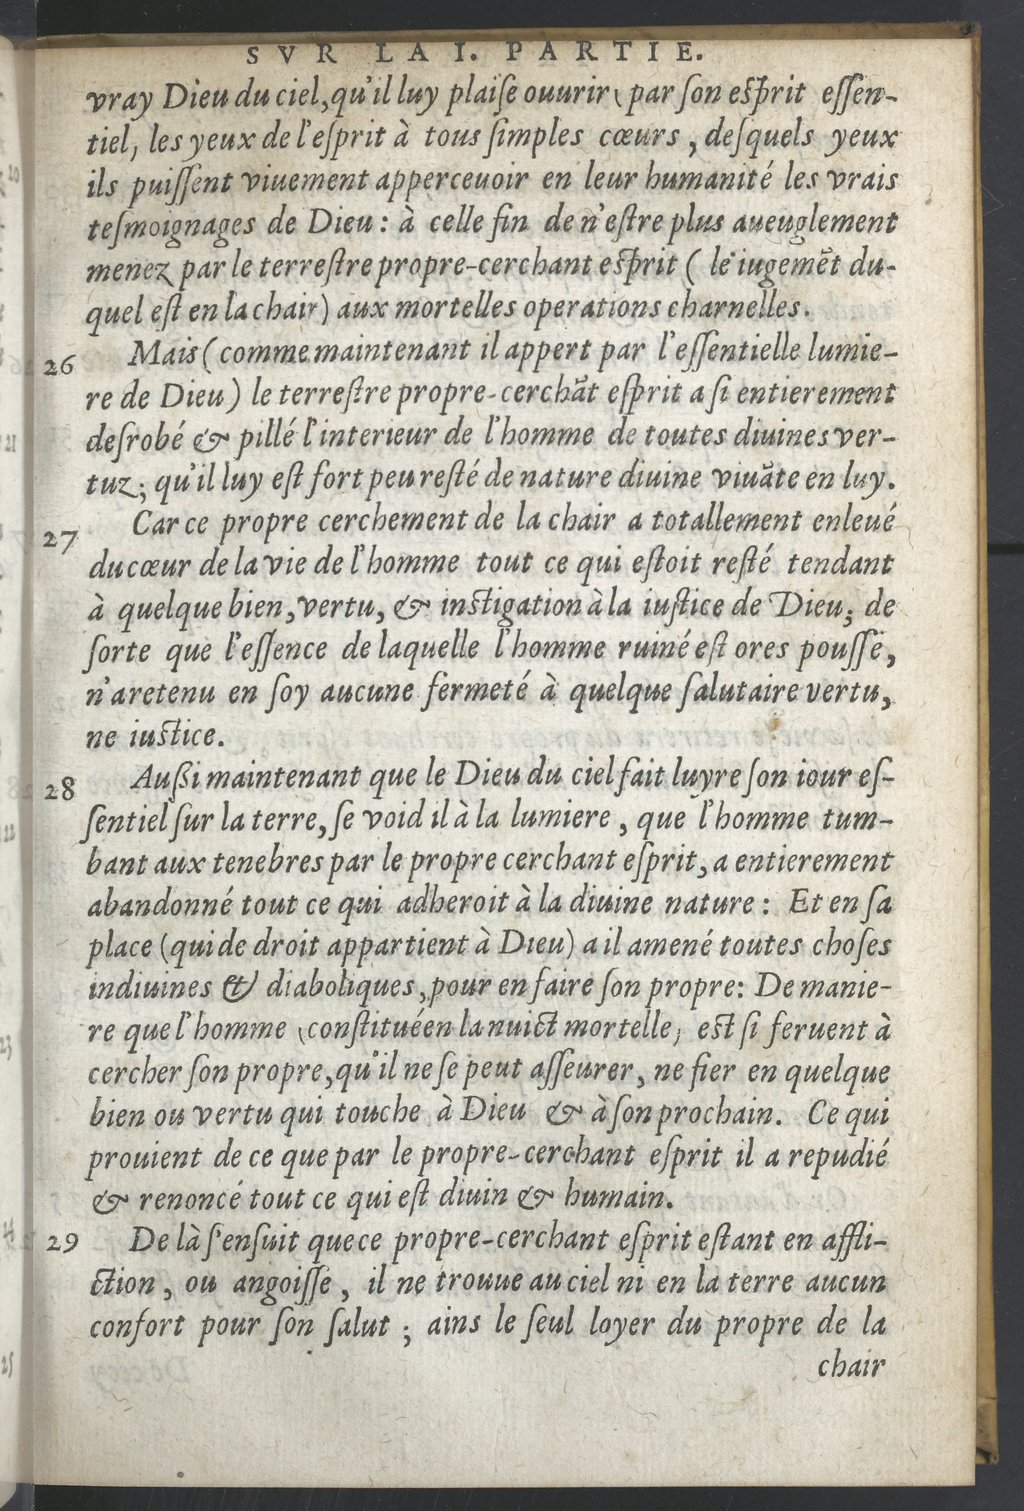 SVR LA I. PARTIE.
vray Dieu du ciel, qu'il luy plaiſe ouurir (par ſon eſprit eſſen-
tiel, les yeux de l'eſprit à tous ſimples cœurs, deſquels yeux
ils puiſſent viuement apperceuoir en leur humanité les vrais
teſmoignages de Dieu: à celle fin de n'eſtre plus aueuglement
menez par le terreſtre propre-cerchant eſprit ( le iugemēt du-
quel eſt en la chair) aux mortelles operations charnelles.
26 Mais (comme maintenant il appert par l'eſſentielle lumie-
re de Dieu) le terreſtre propre-cerchāt eſprit a ſi entierement
deſrobé & pillé l'interieur de l'homme de toutes diuines ver-
tuz; qu'il luy eſt fort peu reſté de nature diuine viuāte en luy.
27 Car ce propre cerchement de la chair a totallement enleué
du cœur de la vie de l'homme tout ce qui eſtoit reſté tendant
à quelque bien, vertu, & inſtigation à la iuſtice de Dieu; de
ſorte que l'eſſence de laquelle l'homme ruiné eſt ores pouſſé,
n'a retenu en ſoy aucune fermeté à quelque ſalutaire vertu,
ne iuſtice.
28 Außi maintenant que le Dieu du ciel fait luyre ſon iour eſ-
ſentiel ſur la terre, ſe void il à la lumiere, que l'homme tum-
bant aux tenebres par le propre cerchant eſprit, a entierement
abandonné tout ce qui adheroit à la diuine nature: Et en ſa
place (qui de droit appartient à Dieu) a il amené toutes choſes
indiuines & diaboliques, pour en faire ſon propre: De manie-
re que l'homme (conſtitué en la nuict mortelle, eſt ſi feruent à
cercher ſon propre, qu'il ne ſe peut aſſeurer, ne fier en quelque
bien ou vertu qui touche à Dieu & à ſon prochain. Ce qui
prouient de ce que par le propre-cerchant eſprit il a repudié
& renoncé tout ce qui eſt diuin & humain.
29 De là s'enſuit que ce propre-cerchant eſprit eſtant en affli-
ction, ou angoiſſe, il ne trouue au ciel ni en la terre aucun
confort pour ſon ſalut; ains le ſeul loyer du propre de la
chair